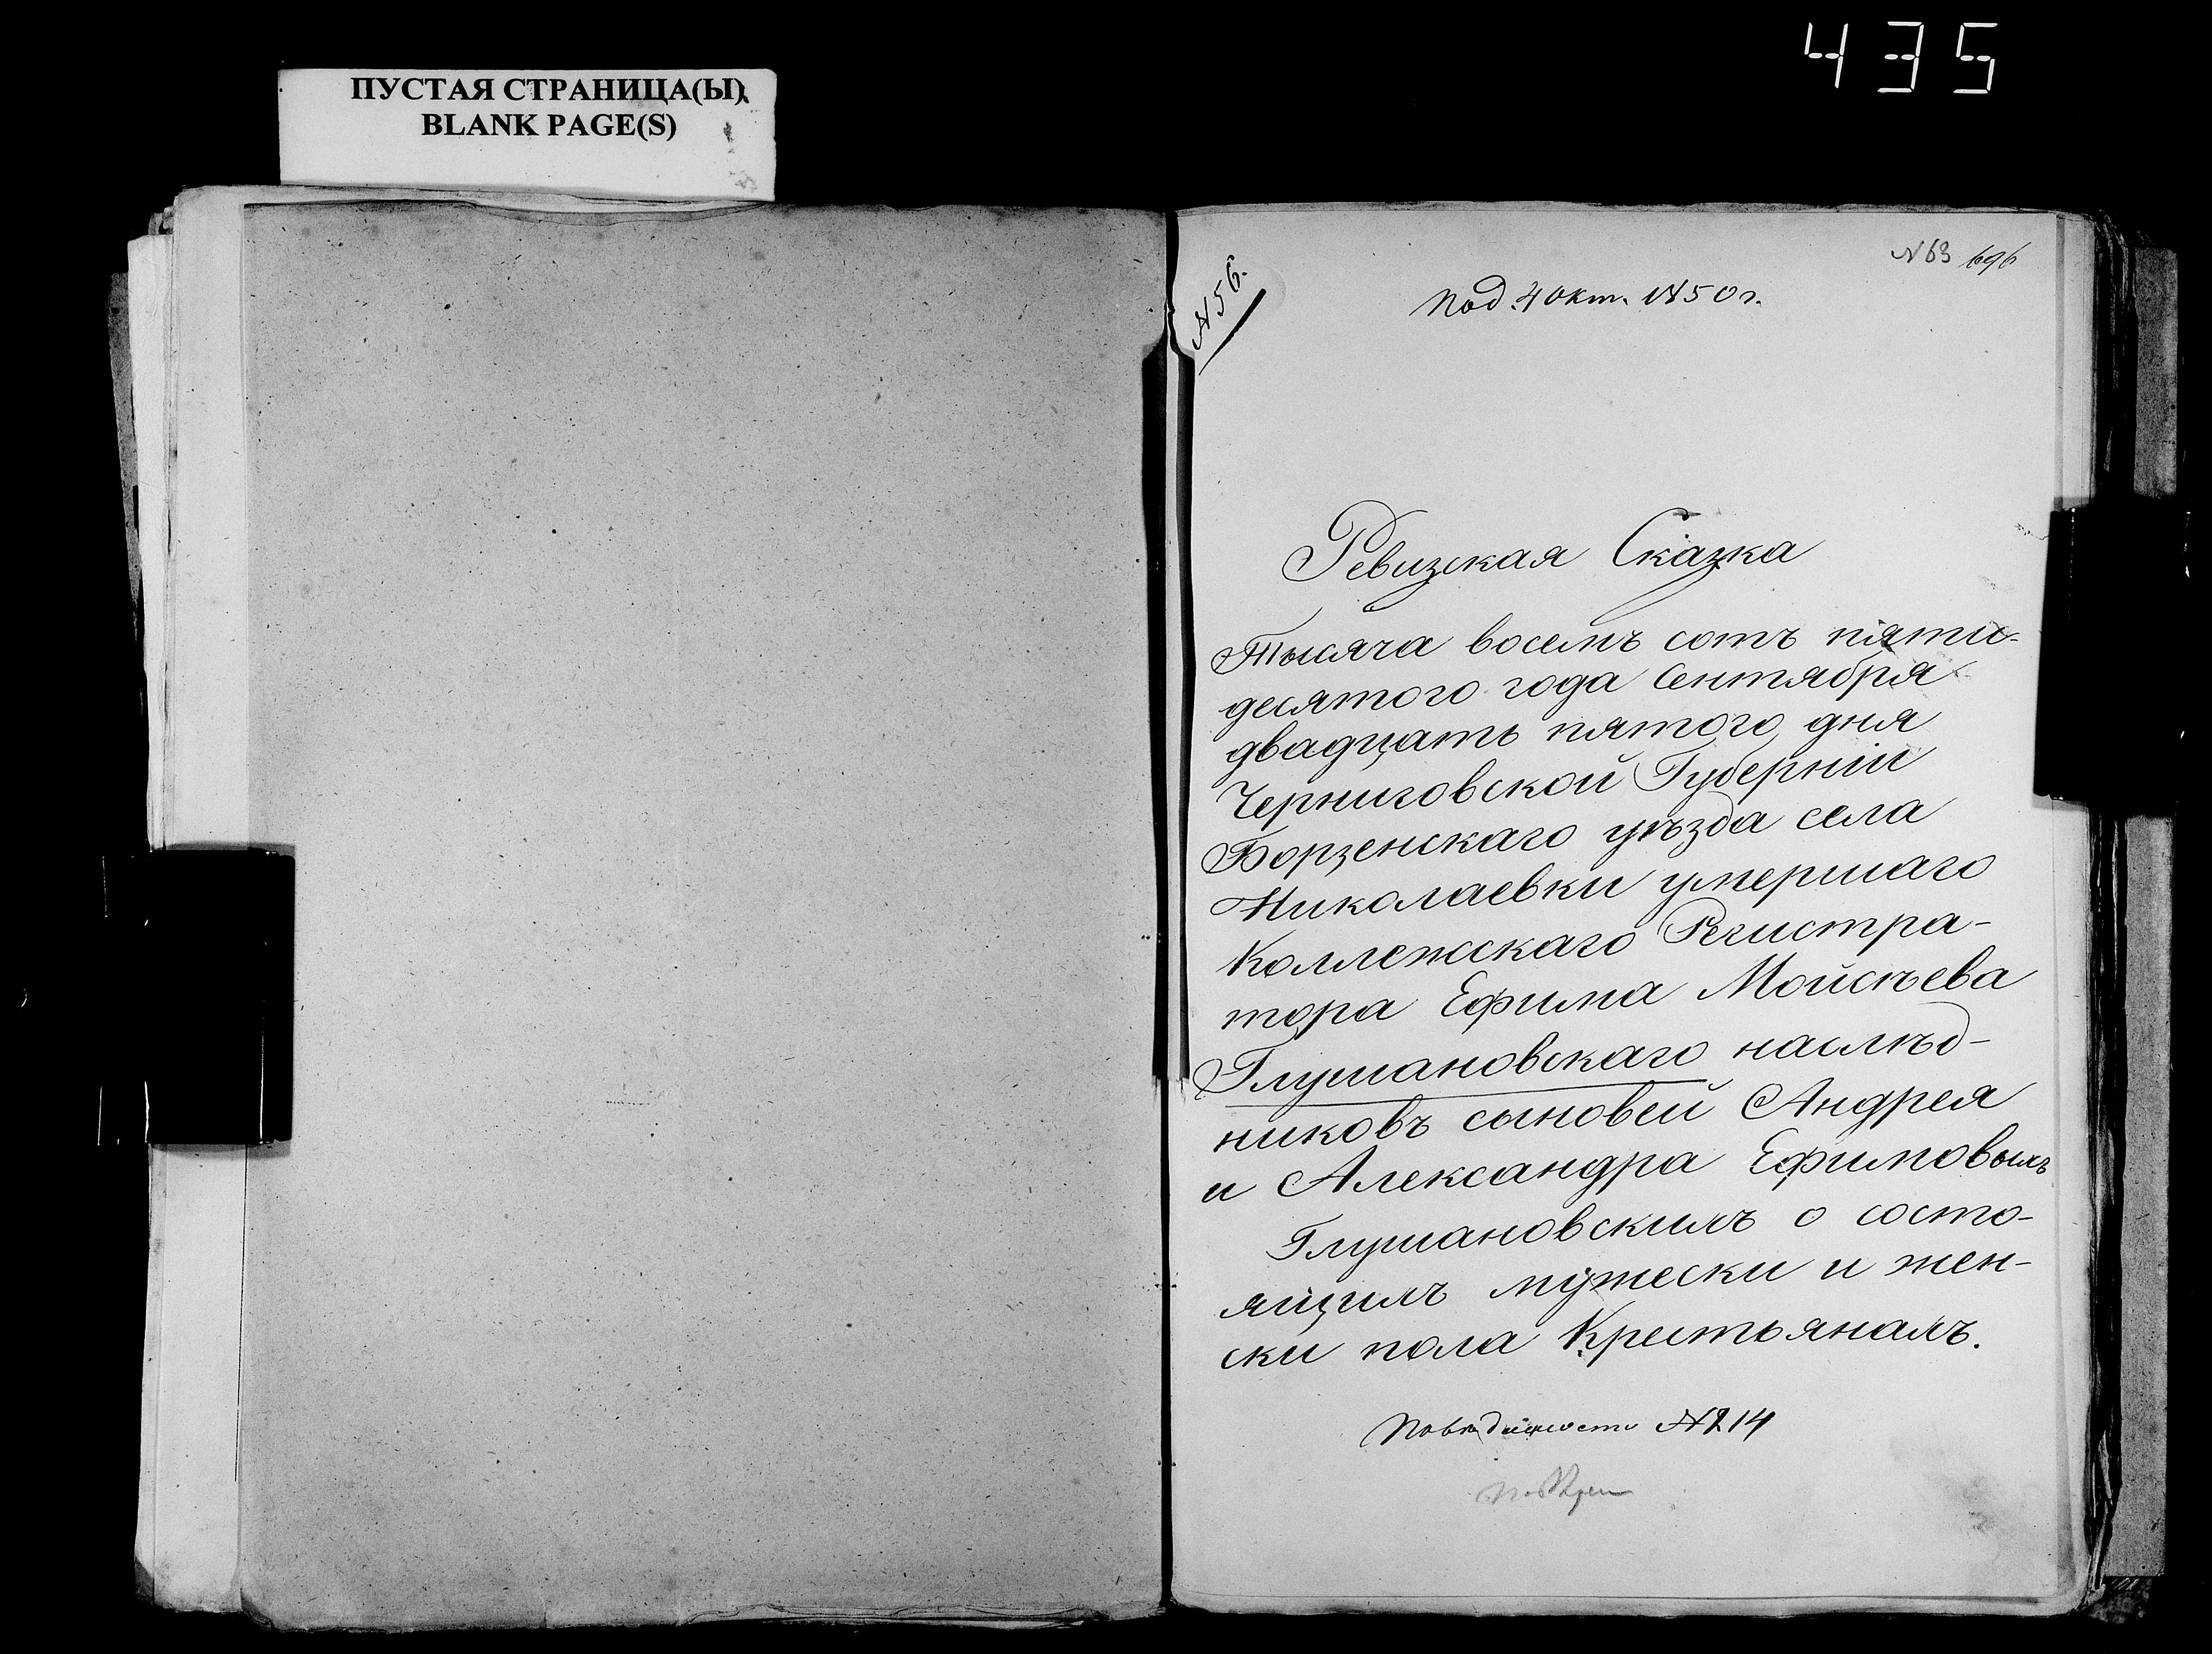 435
ПУСТАЯ СТРАНИЦА(Ы)
BLANK PAGE(S)
N 63 696
N 56.
Под. 4 Окт. 1850 г.
Ревизская Сказка
Тысяча восемъ сотъ пяти-
десятого года Сентября
двадцать пятого дня
Черниговской Губерніи
Борзенскаго уѣзда села
Николаевки умершаго
Коллежскаго Регистра-
тора Ефима Мойсѣева
Глушановскаго наслѣд-
никовъ сыновей Андрея
и Александра Ефимовыхъ
Глушановскихъ о состо-
ящихъ мужески и жен-
ски пола Крестьянахъ.
N 214